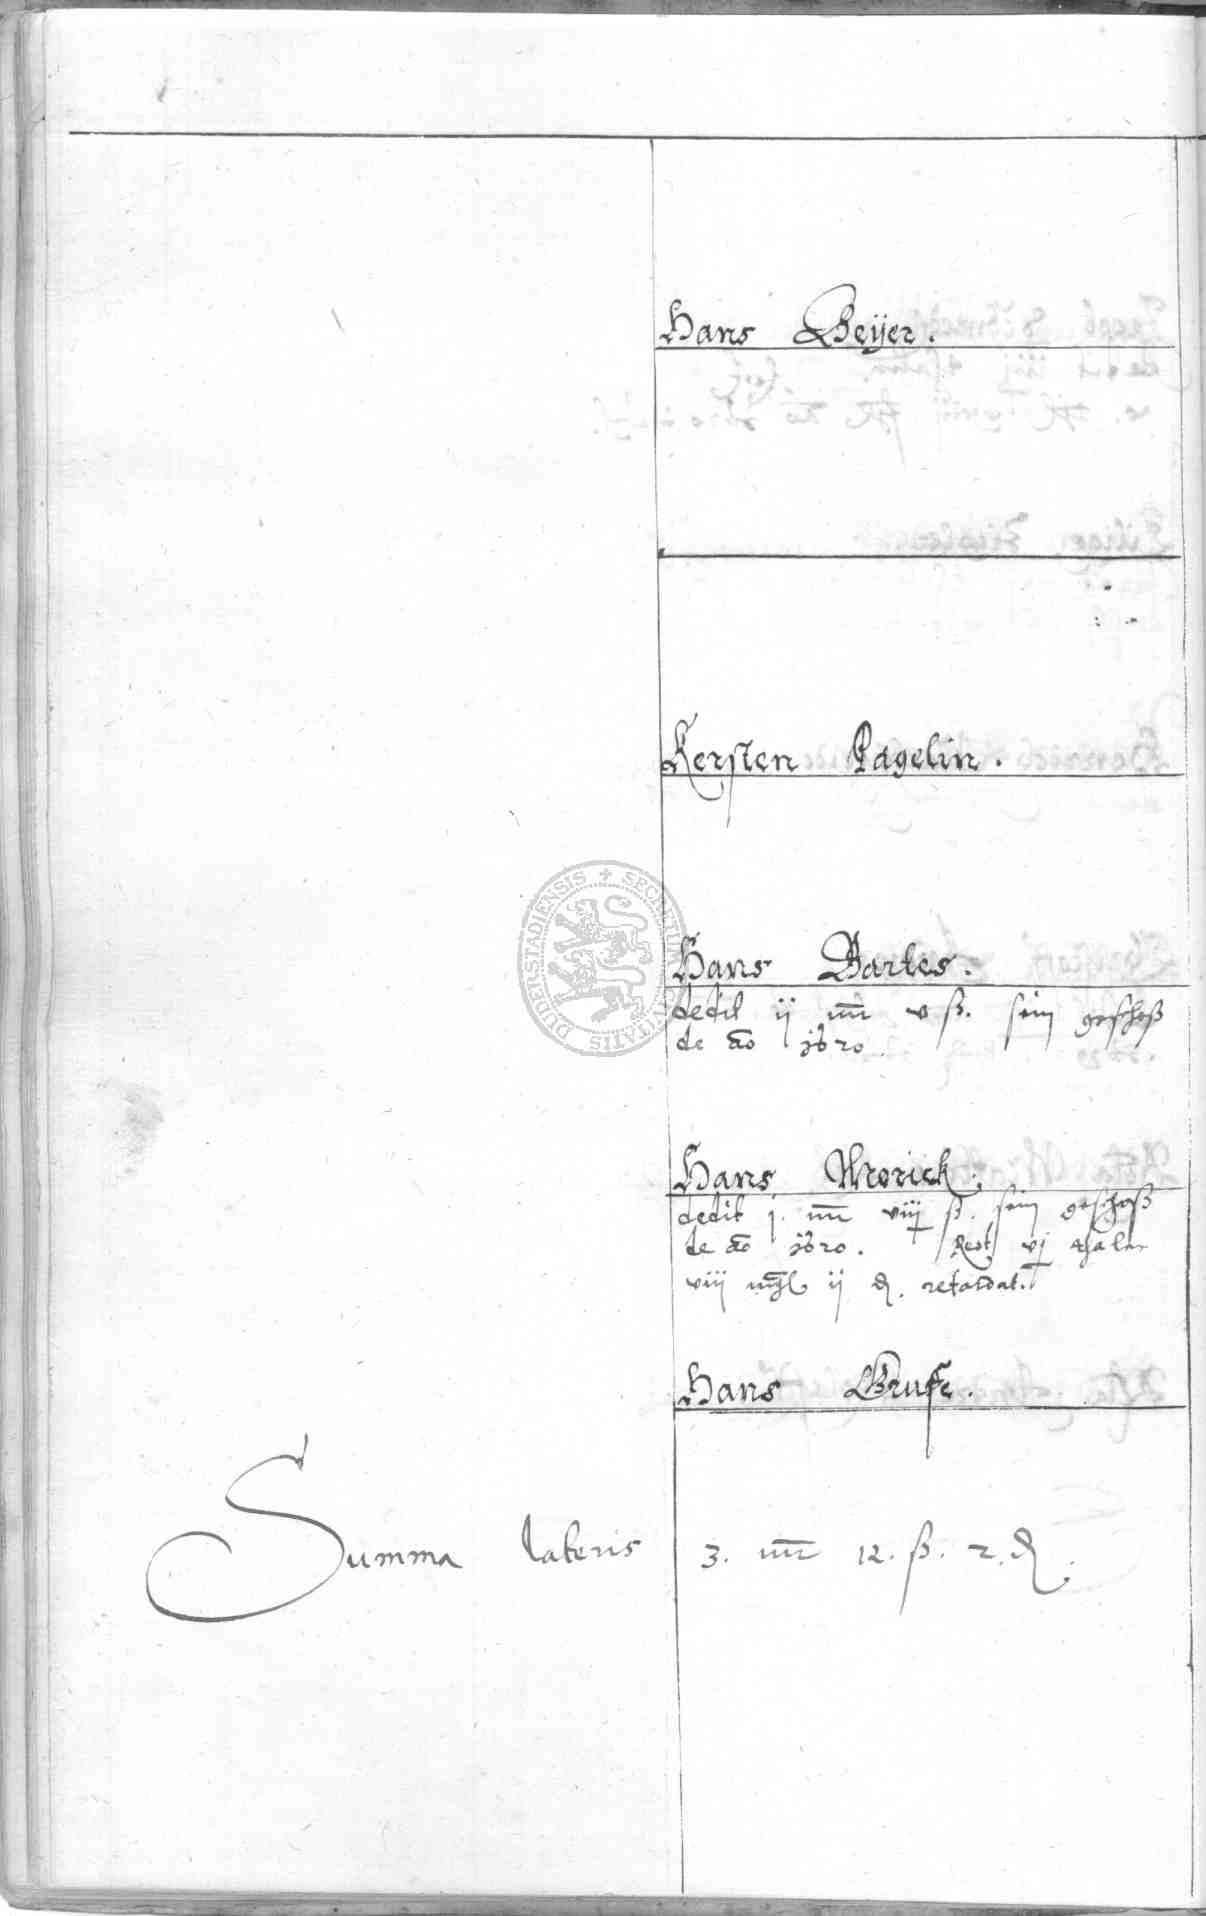 Hans Beÿer.
Kersten Pagelin.
Hans Bartes.
dedit ij mr v ß. sein geschoß
de ao 1620.
Hans Morick.
dedit j. mr viij ß. sein geschoß
de ao 1620. Rest vj thaler
viij mgl ij ₰. retardat.
Hans Gruse.
Summa lateris 3. mr 12. ß. 2. ₰.
SECRETUM CIVITATIS DUDERSTADIENSIS